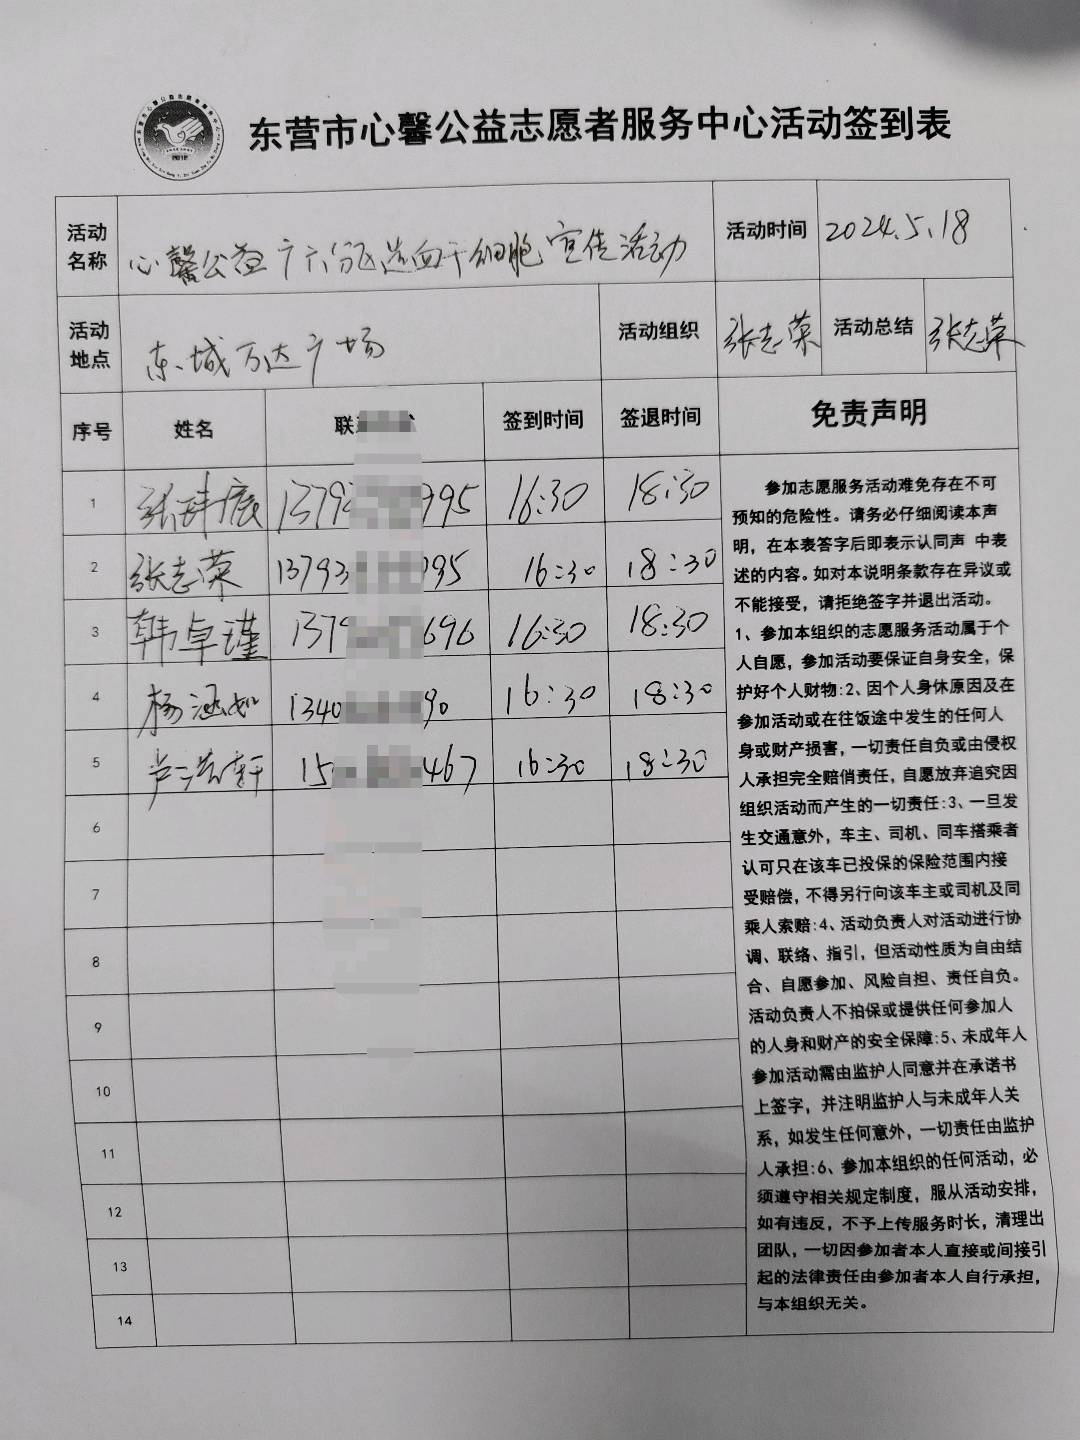 东营市心馨公益志愿者服务中心活动签到表
活动名称 心馨公益广六分区造血干细胞宣传活动 活动时间 2024.5.18
活动地点 东城万达广场 活动组织 张志荣 活动总结 张志荣
序号 姓名 联 签到时间 签退时间 免责声明
1 张 1379 995 16:30 18:30
2 张志荣 13793 995 16:30 18:30
3 韩卓瑾 1379 696 16:30 18:30
4 杨涵如 1340 90 16:30 18:30
5 15 467 16:30 18:30
6
7
8
9
10
11
12
13
14
参加志愿服务活动难免存在不可
预知的危险性。请务必仔细阅读本声
明，在本表答字后即表示认同声 中表
述的内容。如对本说明条款存在异议或
不能接受，请拒绝签字并退出活动。
1、参加本组织的志愿服务活动属于个
人自愿，参加活动要保证自身安全，保
护好个人财物:2、因个人身休原因及在
参加活动或在往饭途中发生的任何人
身或财产损害，一切责任自负或由侵权
人承担完全赔俏责任，自愿放弃追究因
组织活动而产生的一切责任:3、一旦发
生交通意外，车主、司机、同车搭乘者
认可只在该车已投保的保险范围内接
受赔偿，不得另行向该车主或司机及同
乘人索赔:4、活动负责人对活动进行协
调、联络、指引，但活动性质为自由结
合、自愿参加、风险自担、责任自负。
活动负责人不拍保或提供任何参加人
的人身和财产的安全保障:5、未成年人
参加活动需由监护人同意并在承诺书
上签字，并注明监护人与未成年人关
系，如发生任何意外，一切责任由监护
人承担:6、参加本组织的任何活动，必
须遵守相关规定制度，服从活动安排，
如有违反，不予上传服务时长，清理出
团队，一切因参加者本人直接或间接引
起的法律责任由参加者本人自行承担，
与本组织无关。